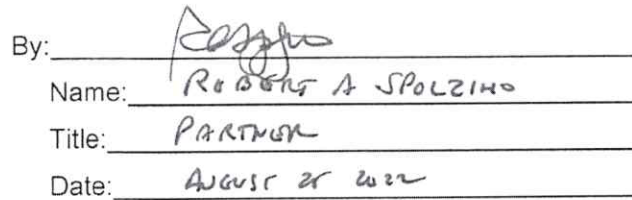 By:
Name: ROBERT A SPOLZINO
Title: PARTNER
Date: AUGUST 25 2022